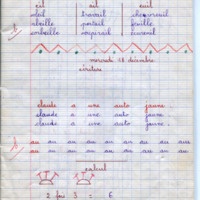 eil ail euil
soleil travail chevreuil
abeille portail feuille
corbeille soupirail écureuil
mercredi 18 décembre
écriture
claude a une auto jaune.
claude a une auto jaune.
claude a une auto jaune.
au au au au au au au au au
au au au au au au au au au
calcul
2 fois 3 = 6